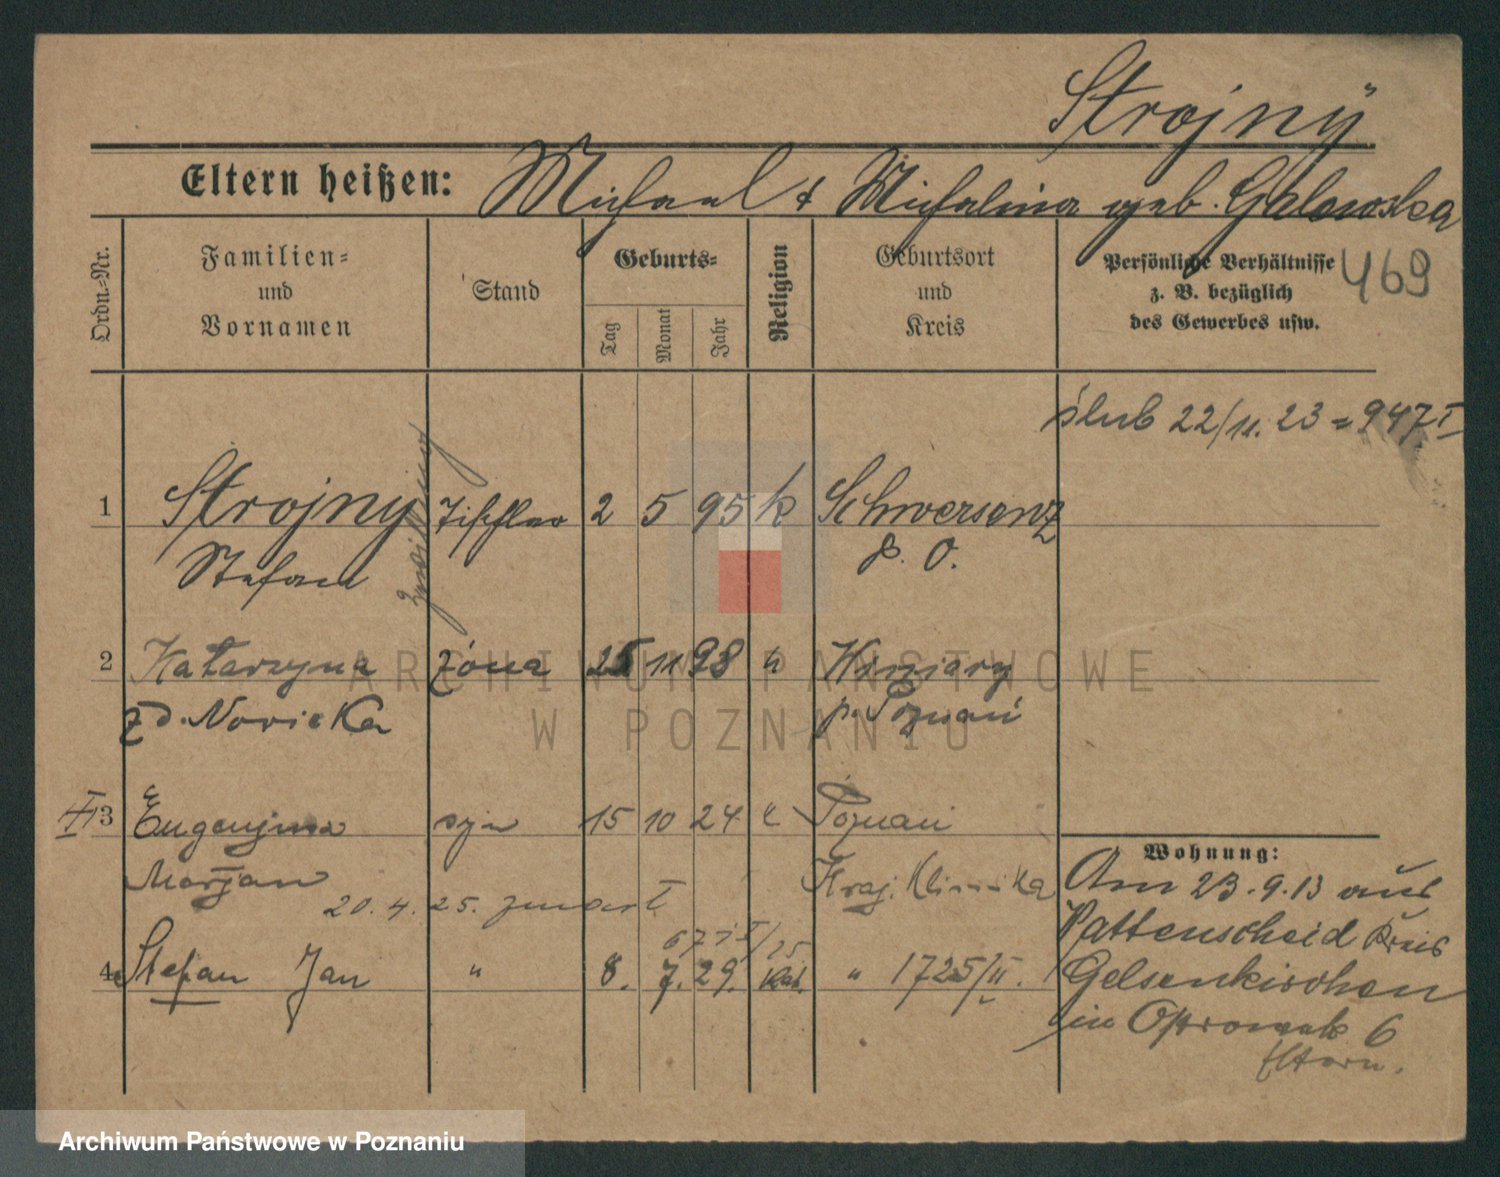 Strojny
Eltern heißen: Michael & Michalina geb. Galewska
469
Ordn.-Nr.
Familien=
und
Vornamen
Stand
Geburts=
Tag
Monat
Jahr
Religion
Geburtsort
und
Kreis
Persönliche Verhältnisse
z. B. bezüglich
des Gewerbes usw.
ślub 22/11. 23 = 947 I
1 Strojny Tischler 2 5 95 k Schwersenz
Stefan P. O.
Zwilling
2 Katarzyna żona 25 11 98 k
zd. Nowicka p. Poznań
3 Eugenjusz syn 15 10 24 k Poznań
Marjan Kraj. Klinika
20. 4. 25.
4 Stefan Jan " 8. 7. 29. kat. " 1725/II.
Wohnung:
Am 23.9.13 aus
Wattenscheid Kreis
Gelsenkirchen
in 6
Eltern.
ARCHIWUM PAŃSTWOWE
W POZNANIU
Archiwum Państwowe w Poznaniu